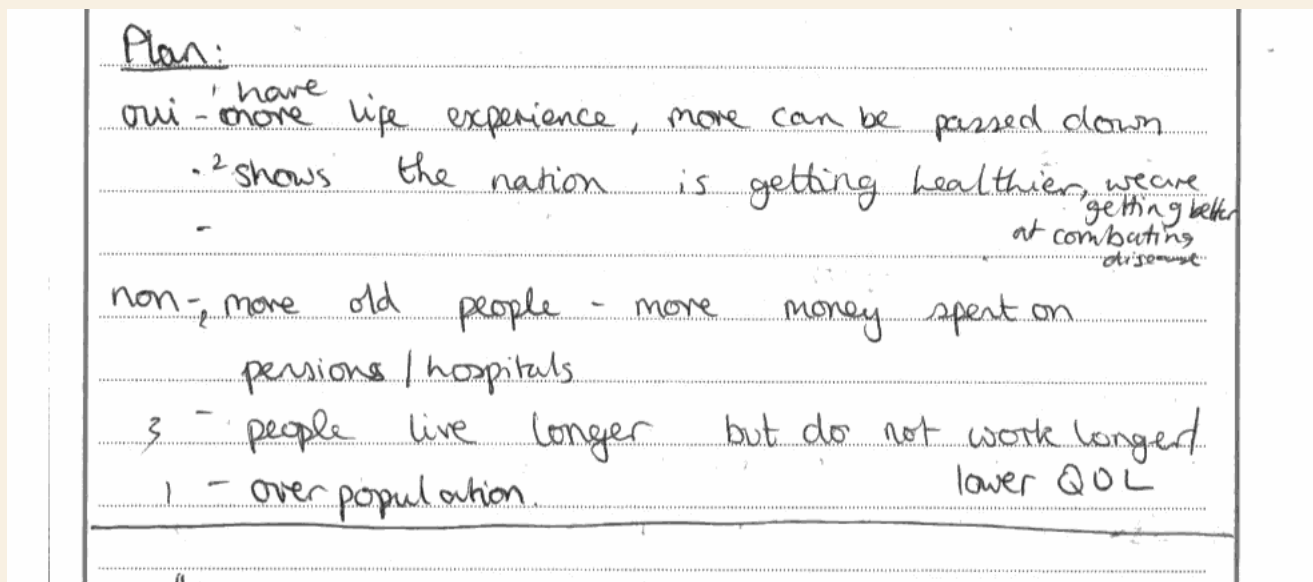 Plan:
oui - ' have
more life experience, more can be passed down
. 2 shows the nation is getting healthier, we are
getting better
- at combating
disease
non - 2 more old people - more money spent on
pensions / hospitals
3 - people live longer but do not work longer/
1 - over population. lower QOL